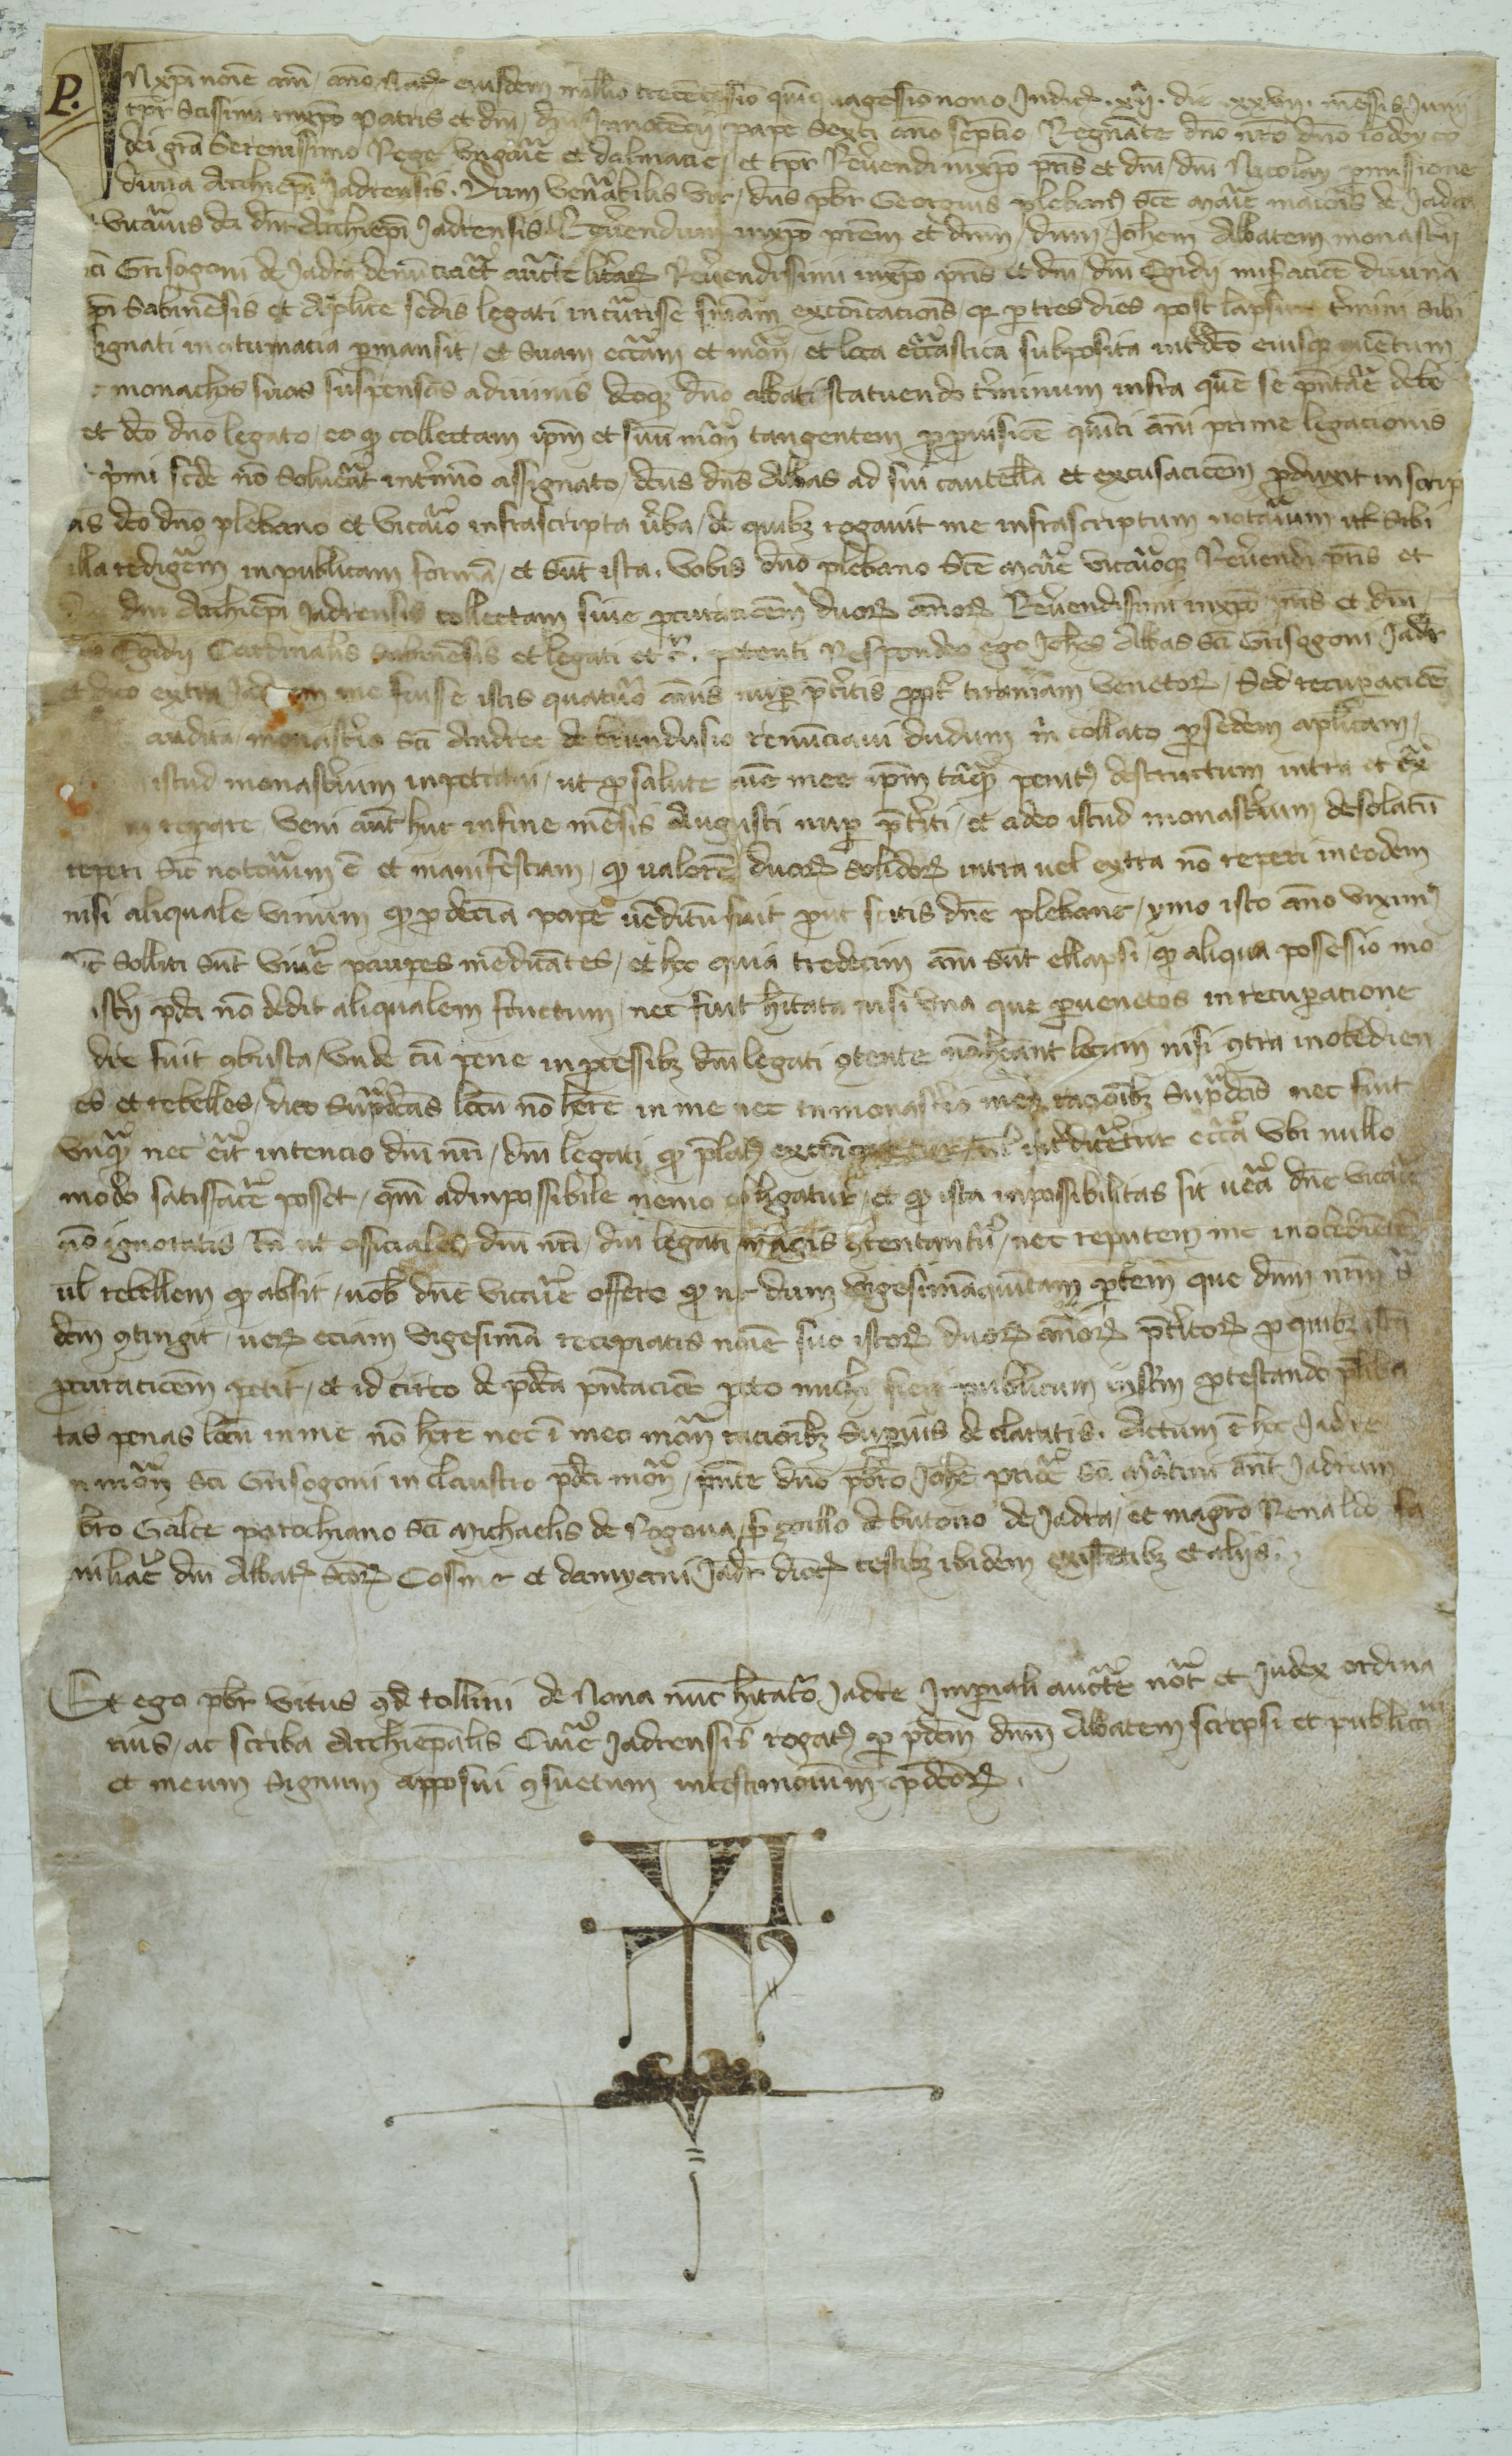 P.
In xpi noie am̄. anno Natiᵗ eiusdem millio trecentessio quinquagessio nono Indictᵉ. xij. die xxvij. mensis Junij
tpr̄ Sctissimi in xpo Patris et dn̄i, dn̄i Innocencij pape Sexti anno septio, Regnāte dn̄o nr̄o dn̄o lodoyco
dei gr̄a Serenissimo Rege Vngarie et dalmacie, et tpr̄ Reuerendi in xpo pr̄is et dn̄i, dn̄i Nycolai pmissione
diuina Archiepi Jadrensis. Dum venerabilis vir, dn̄s pbr̄ Georgius plebanꝰ Scē Marie maioris de Jadra
vicarius dc̄i dn̄i Archiepi Jadrensis Reuerendum in xpo pr̄em et dn̄um, dn̄um Johem Abbatem monasterij
sc̄i Grisogoni de Jadra denunciaret auctte lrār̄ Reuerendissimi in xpo pr̄is et dn̄i, dn̄i Egidij miseracione diuina
epi Sabinensis et Aplice sedis legati incurrisse sniam excōicacionis, qr p tres dies post lapsum termini sibi
signati in cōtumacia pmansit, et suam ecclam et mon̄, et loca eccliastica subposita intdco eiusque
monachos suos suspensos a diuinis dcoque dn̄o abbati statuendo terminum infra quē se pn̄tare debe
et dco dn̄o legato, eo qd collectam ipm et suū mon̄ tangentem p puisiōe quinti anni prime legacionis
primi scde nō soluerat in termio assignato, dc̄us dn̄s Abbas ad sui cautella et excusaciōem pduxit in scrip
as dco dn̄o plebano et vicario infrascripta verba, de quibꝫ rogauit me infrascriptum notarium ut sibi
illa redigerem in publicam formā, et sūt ista. Vobis dn̄o plebano Scē Marie vicarioque Reuerendi pr̄is et
dn̄i Archiepi Jadrensis collectam siue pcuraciōem duoꝝ annoꝝ Reuerendissimi in xpo pr̄is et dn̄i,
dn̄i Egidij Cardinalis Sabinensis et legati etc̄. petenti Respondeo ego Johes Abbas Sc̄i Grisogoni Jadr̄
et dico extra Jadram me fuisse istis quatuor annis nup pteritis ppter tiraniam Venetoꝝ, Sed recupaciōe
audita, monasterio Sc̄i Andree de brundusio renunciaui dudum m̄ collato p sedem aplicam,
istud monasterium inpetraui, ut p salute aīe mee ipm tāqᵃm penitꝰ destructum intra et extra
repare Veni aut̄ huc in fine mensis Augusti nup pteriti, et adeo istud monasterium desolatū
reperi Sic notorium ē et manifestum, qd valorē duoꝝ solidoꝝ intra uel extra nō reperi in eodem
nisi aliquale vinum qd p decīa pape vēditū fuit put scitis dn̄e plebane, ymo isto anno viximꝰ
sic solliti sūt viuere paupes mēdicātes, et hoc quia tredecim anni sūt ellapsi, qd aliqua possessio mo
nasterij pdc̄i nō dedit aliqualem fructum, nec fuit hitata nisi vna que p venetos in recupatione
dre fuit ꝯbusta, vnde cū pene in pcessibꝫ dn̄i legati ꝯtente nō habeant locum nisi ꝯtra inobedien
es et rebelles, dico supradc̄as locū nō here in me nec in monasterio meo racionibꝫ supradc̄is nec fuit
vnqᵃm nec erit intencio dn̄i nr̄i, dn̄i legati, qd platꝰ excōicaretur, uel intdiceretur ecclia vbi nullo
modo satisfacere posset, qm̄ ad inpossibile nemo obligatur, et qd ista inpossibilitas sit vera dn̄e vicarie
nō ignoratis, tn̄ ut officiales dn̄i nr̄i, dn̄i legati magis ꝯtententur, nec reputem me inobedientē
ul rebellem qd absit, uob dn̄e vicarie offero qd ne dum vigesimāquintam ptem que dn̄um nr̄m
dem ꝯtingit, ueꝝ eciam vigesimā recipiatis noīe suo istoꝝ duoꝝ annoꝝ pteritoꝝ p quibꝫ istā
pcuraciōem petit, et id circo de pdc̄a pn̄taciōe peto michi fieri publicum instm ptestando pliba
tas penas locū in me nō here nec ī meo mon̄ racionibꝫ superius declaratis. Actum ē hoc Jadre
in mon̄ Sc̄i Grisogoni in claustro pdc̄i mon̄, pn̄te dn̄o pbro Johe priore Sc̄i Martini ant̄ Jadram
bro Galce parochiano Sc̄i Michaelis de Rogoua, de butouo de Jadra, et magr̄o Renaldo fa
miliare dn̄i Abbatꝭ Sc̄oꝝ Cosme et damyani Jadr̄ dioc̄ testibꝫ ibidem existētibꝫ et aliis.
Et ego pbr̄ Vitus qd tollini de Nona nūc hitator Jadre Imperiali auctte not̄ et Judex ordina
rius, ac scriba Archiepalis Curie Jadrensis rogatꝰ p pdcm dn̄um Abbatem scripsi et publicaui
et meum Signum apposui ꝯsuetum in testimonium pdc̄oꝝ.